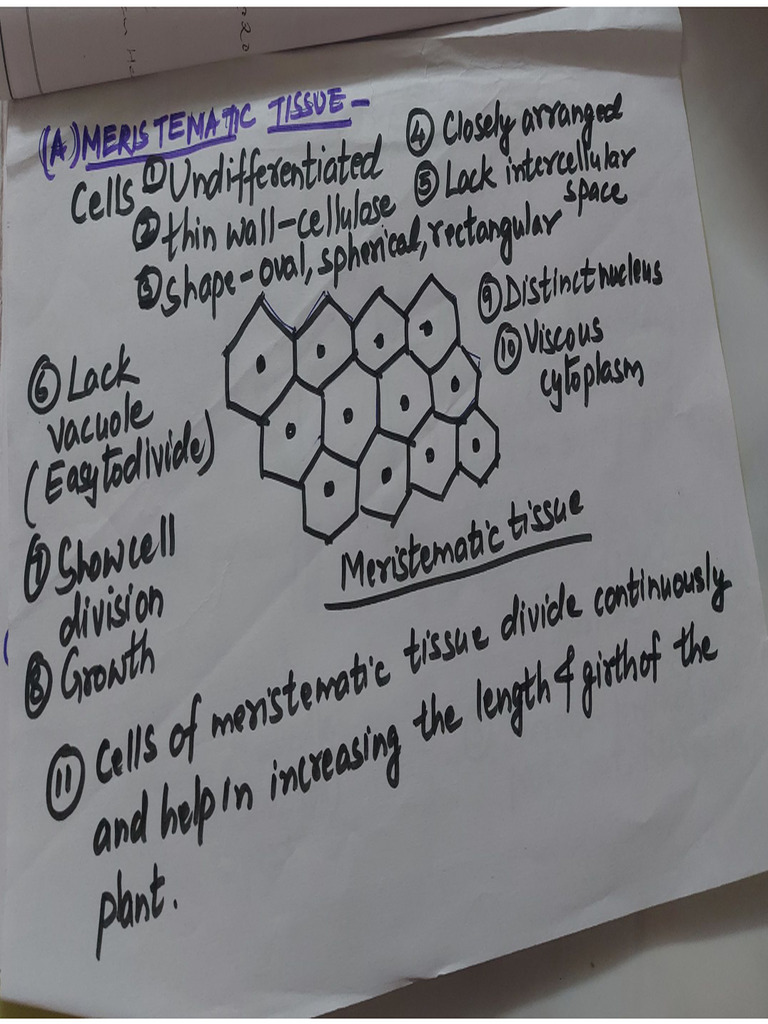 (A) MERISTEMATIC TISSUE-
Cells ① Undifferentiated
② thin wall-cellulose
③ shape-oval, spherical, rectangular
④ Closely arranged
⑤ Lack intercellular
space
⑥ Lack
vacuole
(Easy to divide)
⑦ Show cell
division
⑧ Growth
⑨ Distinct nucleus
⑩ Viscous
cytoplasm
Meristematic tissue
⑪ Cells of meristematic tissue divide continuously
and help in increasing the length & girth of the
plant.